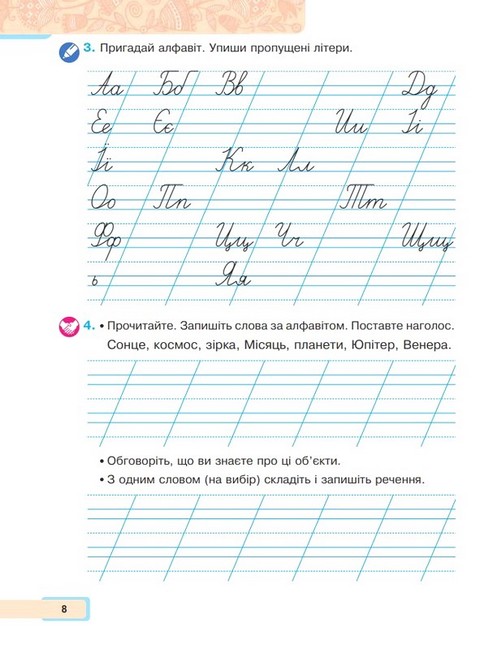 3. Пригадай алфавіт. Упиши пропущені літери.
Аа Бб Вв Дд
Ее Єє Ии Іі
Її Кк Лл
Оо Пп Тт
Фф Цц Чч Щщ
ь Яя
4. • Прочитайте. Запишіть слова за алфавітом. Поставте наголос.
Сонце, космос, зірка, Місяць, планети, Юпітер, Венера.
• Обговоріть, що ви знаєте про ці об’єкти.
• З одним словом (на вибір) складіть і запишіть речення.
8